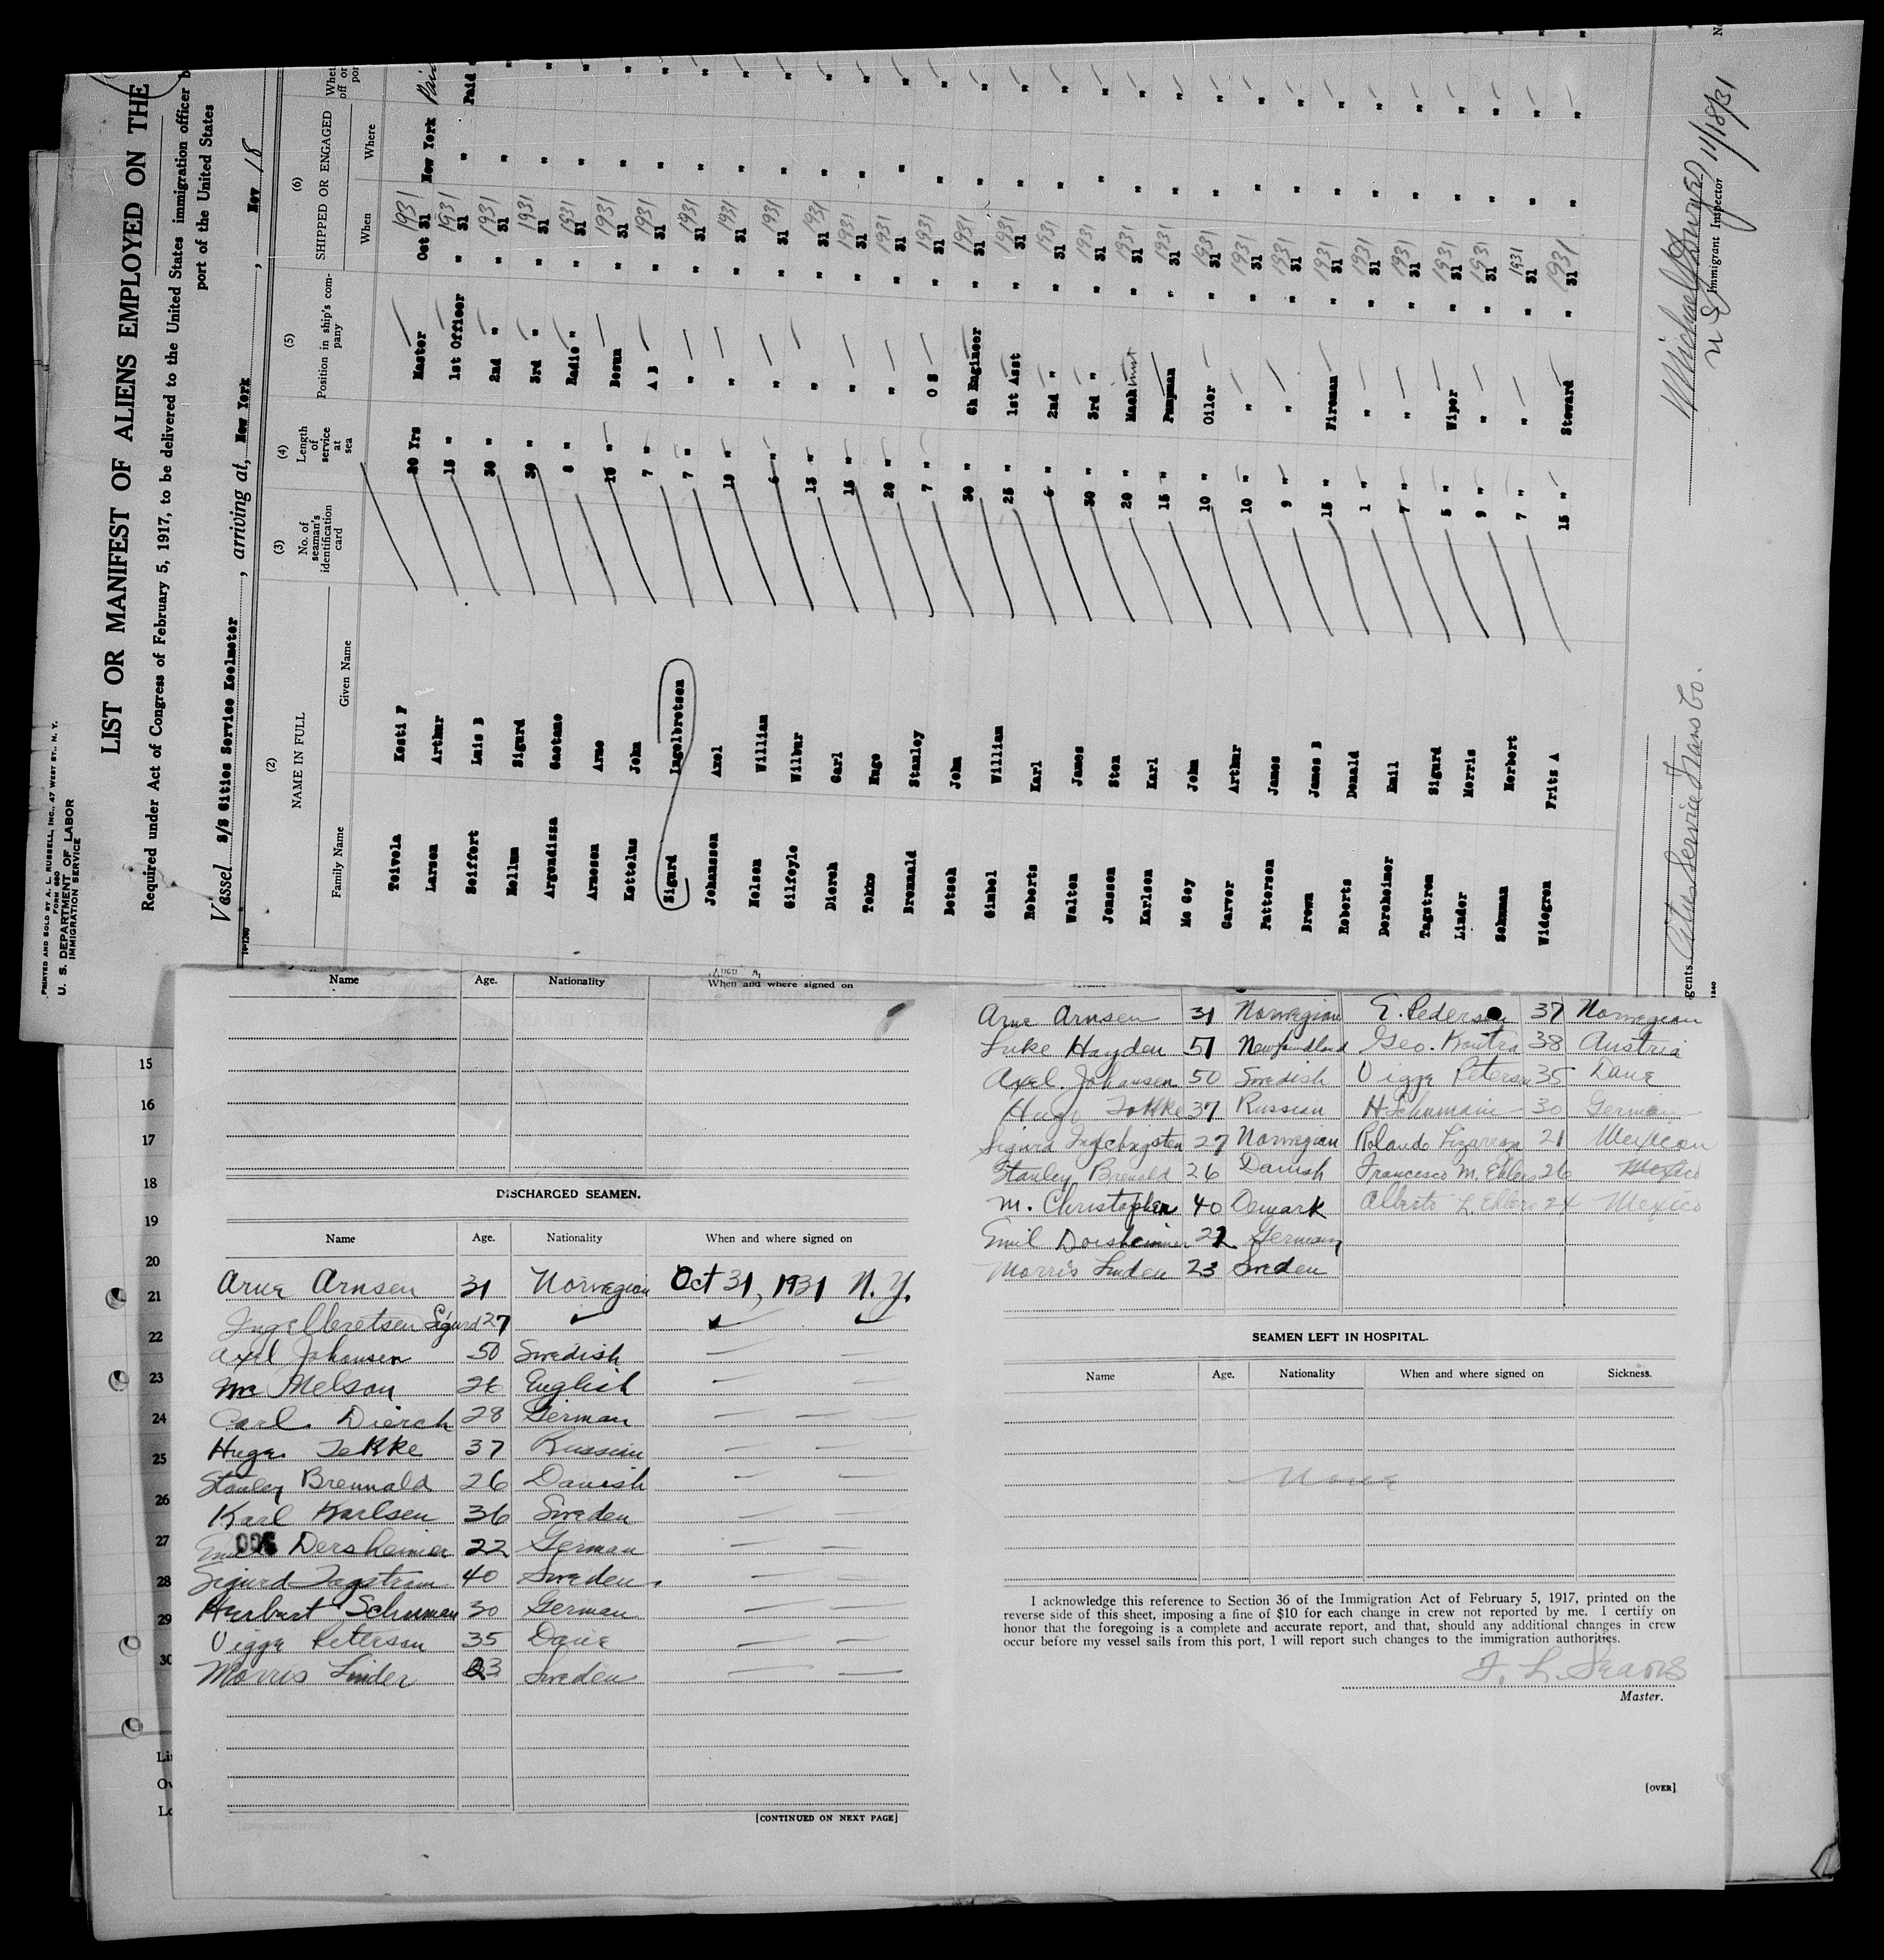 PRINTED AND SOLD BY A. L. RUSSELL, INC., 47 WEST ST., N. Y.
FORM 680
U. S. DEPARTMENT OF LABOR
IMMIGRATION SERVICE
LIST OR MANIFEST OF ALIENS EMPLOYED ON THE
Required under Act of Congress of February 5, 1917, to be delivered to the United States immigration officer b
port of the United States
Vessel S/S Cities Service Koolmotor, arriving at, New York, Nov 18
14-1240
(2) (3) (4) (5) (6)
NAME IN FULL No. of seaman's identification card Length of service at sea Position in ship's company SHIPPED OR ENGAGED Whet off or por
Family Name Given Name When Where
Toivola Kosti F 20 Yrs Master Oct 31 1931 New York Paid
Larsen Arthur 15 " 1st Officer " 31 1931 " Paid
Seiffert Luis B 30 " 2nd " " 31 1931 " "
Mellum Sigurd 30 " 3rd " " 31 1931 " "
Argondissa Gaetano 8 " Radio " " 31 1931 " "
Arnesen Arne 10 " Bosun " 31 1931 " "
Kottolus John 7 " A B " 31 1931 " "
Sigurd Ingelbretsen 7 " " " 31 1931 " "
Johanssen Axel 10 " " " 31 1931 " "
Nelson William 6 " " " 31 1931 " "
Gilfoyle Wilbur 15 " " " 31 1931 " "
Dierch Carl 15 " " " 31 1931 " "
Tokke Hugo 20 " " " 31 1931 " "
Brennald Stanley 7 " O S " 31 1931 " "
Botsch John 30 " Ch Engineer " 31 1931 " "
Gimbel William 25 " 1st Asst " 31 1931 " "
Roberts Karl 6 " 2nd " " 31 1931 " "
Walton James 30 " 3rd " " 31 1931 " "
Jonsson Sten 20 " Mach " 31 1931 " "
Karlsen Karl 15 " Pumpman " 31 1931 " "
Mc Coy John 10 " Oiler " 31 1931 " "
Carver Arthur 10 " " " 31 1931 " "
Patterson James 9 " " " 31 1931 " "
Brown James B 15 " Fireman " 31 1931 " "
Roberts Donald 1 " " " 31 1931 " "
Dorsheimer Emil 7 " " " 31 1931 " "
Tagstrom Sigurd 5 " Wiper " 31 1931 " "
Linder Morris 9 " " " 31 1931 " "
Schuman Herbert 7 " " " 31 1931 " "
Widegren Fritz A 15 " Steward " 31 1931 " "
gents Cities Service Trans Co.
11/18/31
Immigrant Inspector
Name Age. Nationality When and where signed on
15
16
17
18
19
20
21
22
23
24
25
26
27
28
29
30
DISCHARGED SEAMEN.
Name Age. Nationality When and where signed on
Arne Arnsen 31 Norwegian Oct 31, 1931 N. Y.
Ingelbretsen Sigurd 27
Axel Johansen 50 Swedish
Wm Nelson 26 English
Carl Dierch 28 German
Hugo Tekke 37 Russian
Stanley Brennald 26 Danish
Karl Karlsen 36 Sweden
Emil Dersheimer 22 German
Sigurd Tagstrom 40 Sweden
Herbert Schuman 30 German
Vigga Peterson 35 Dane
Morris Linder 23 Sweden
[CONTINUED ON NEXT PAGE]
Arne Arnsen 31 Norwegian E. Pederson 37 Norwegian
Luke Hayden 51 Newfoundland Geo. Koutra 38 Austria
Axel. Johansen 50 Swedish Vigga Peterson 35 Dane
Hugo Tokke 37 Russian H Schumann 30 German
Sigurd 27 Norwegian Rolando Lizarraga 21 Mexican
Stanley Brenald 26 Danish Francesco M. Ehlers 26 Mexico
M. Christophen 40 Denmark Alberto L. Ehlers 24 Mexico
Emil Dorsheimer 22 German
Morris Linden 23 Sweden
SEAMEN LEFT IN HOSPITAL.
Name Age. Nationality When and where signed on Sickness.
None
I acknowledge this reference to Section 36 of the Immigration Act of February 5, 1917, printed on the
reverse side of this sheet, imposing a fine of $10 for each change in crew not reported by me. I certify on
honor that the foregoing is a complete and accurate report, and that, should any additional changes in crew
occur before my vessel sails from this port, I will report such changes to the immigration authorities.
Master.
[OVER]